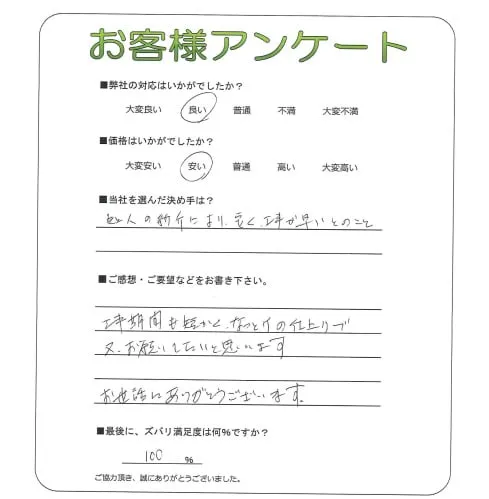 お客様アンケート
■弊社の対応はいかがでしたか?
大変良い 良い 普通 不満 大変不満
■価格はいかがでしたか?
大変安い 安い 普通 高い 大変高い
■当社を選んだ決め手は?
知人の紹介により、安く、工事が早いとのこと
■ご感想・ご要望などをお書き下さい。
工事期間も短かく、なっとくの仕上りで
又、お願いしたいと思います
お世話にありがとうございます。
■最後に、ズバリ満足度は何%ですか?
100 %
ご協力頂き、誠にありがとうございました。